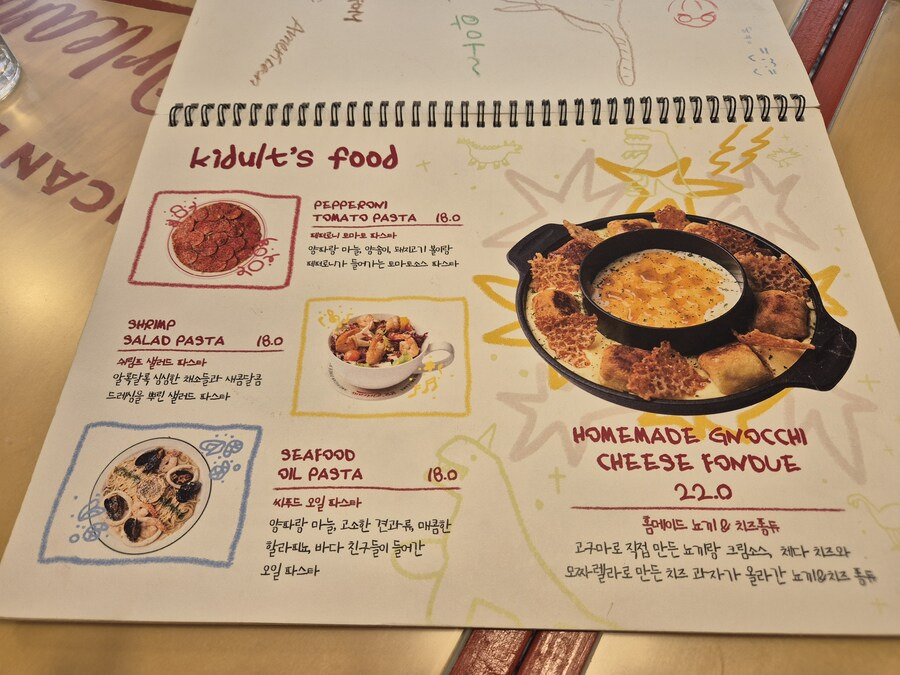 American
우아~
kidult's food
PEPPERONI
TOMATO PASTA 18.0
페퍼로니 토마토 파스타
양파랑 마늘, 양송이, 돼지고기 볼이랑
페퍼로니가 들어가는 토마토소스 파스타
SHRIMP
SALAD PASTA 18.0
쉬림프 샐러드 파스타
알록달록 싱싱한 채소들과 새콤달콤
드레싱을 뿌린 샐러드 파스타
SEAFOOD
OIL PASTA 18.0
씨푸드 오일 파스타
양파랑 마늘, 고소한 견과류, 매콤한
할라피뇨, 바다 친구들이 들어간
오일 파스타
HOMEMADE GNOCCHI
CHEESE FONDUE
22.0
홈메이드 뇨끼 & 치즈퐁듀
고구마로 직접 만든 뇨끼랑 크림소스, 체다 치즈와
모짜렐라로 만든 치즈 과자가 올라간 뇨끼&치즈 퐁듀